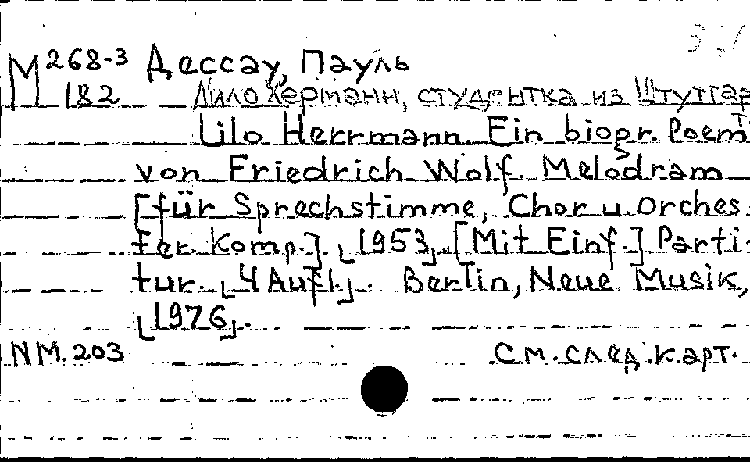 М 268-3 Дессау, Пауль
182 Лило Херманн, студентка из Штутгар
Lilo Herrmann. Ein biogr. Poem
von Friedrich Wolf. Melodram
[für Sprechstimme, Chor u. Orches
ter. Komp.] [1953]. [Mit Einf.] Parti
tur. [4 Aufl]. Berlin, Neue Musik,
[1976].
NM. 203 См. след. карт.